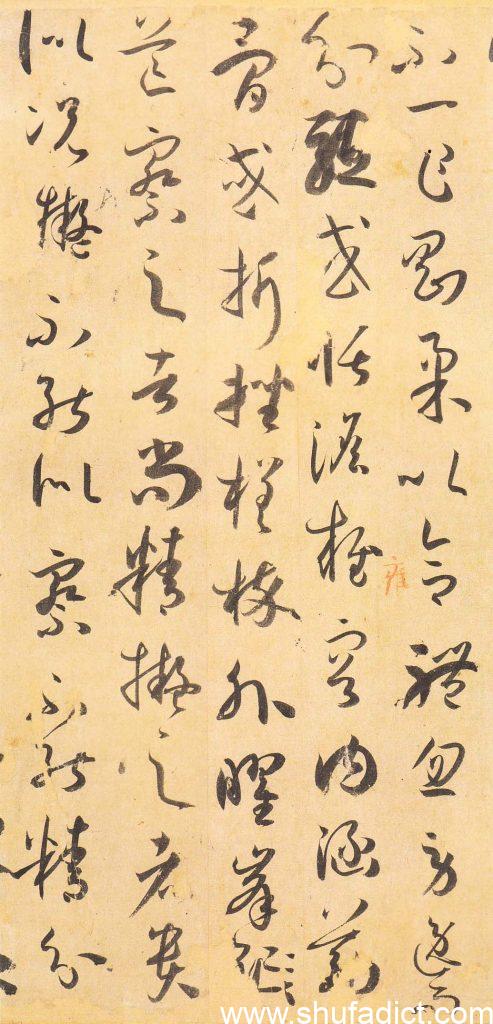 不一乍剛柔以合體忽勞逸而
分驅或恬澹雍容內涵筋
骨或折挫槎枿外曜峯
芒察之者尚精擬之者貴
似況擬不能似察不能精分
www.shufadict.com